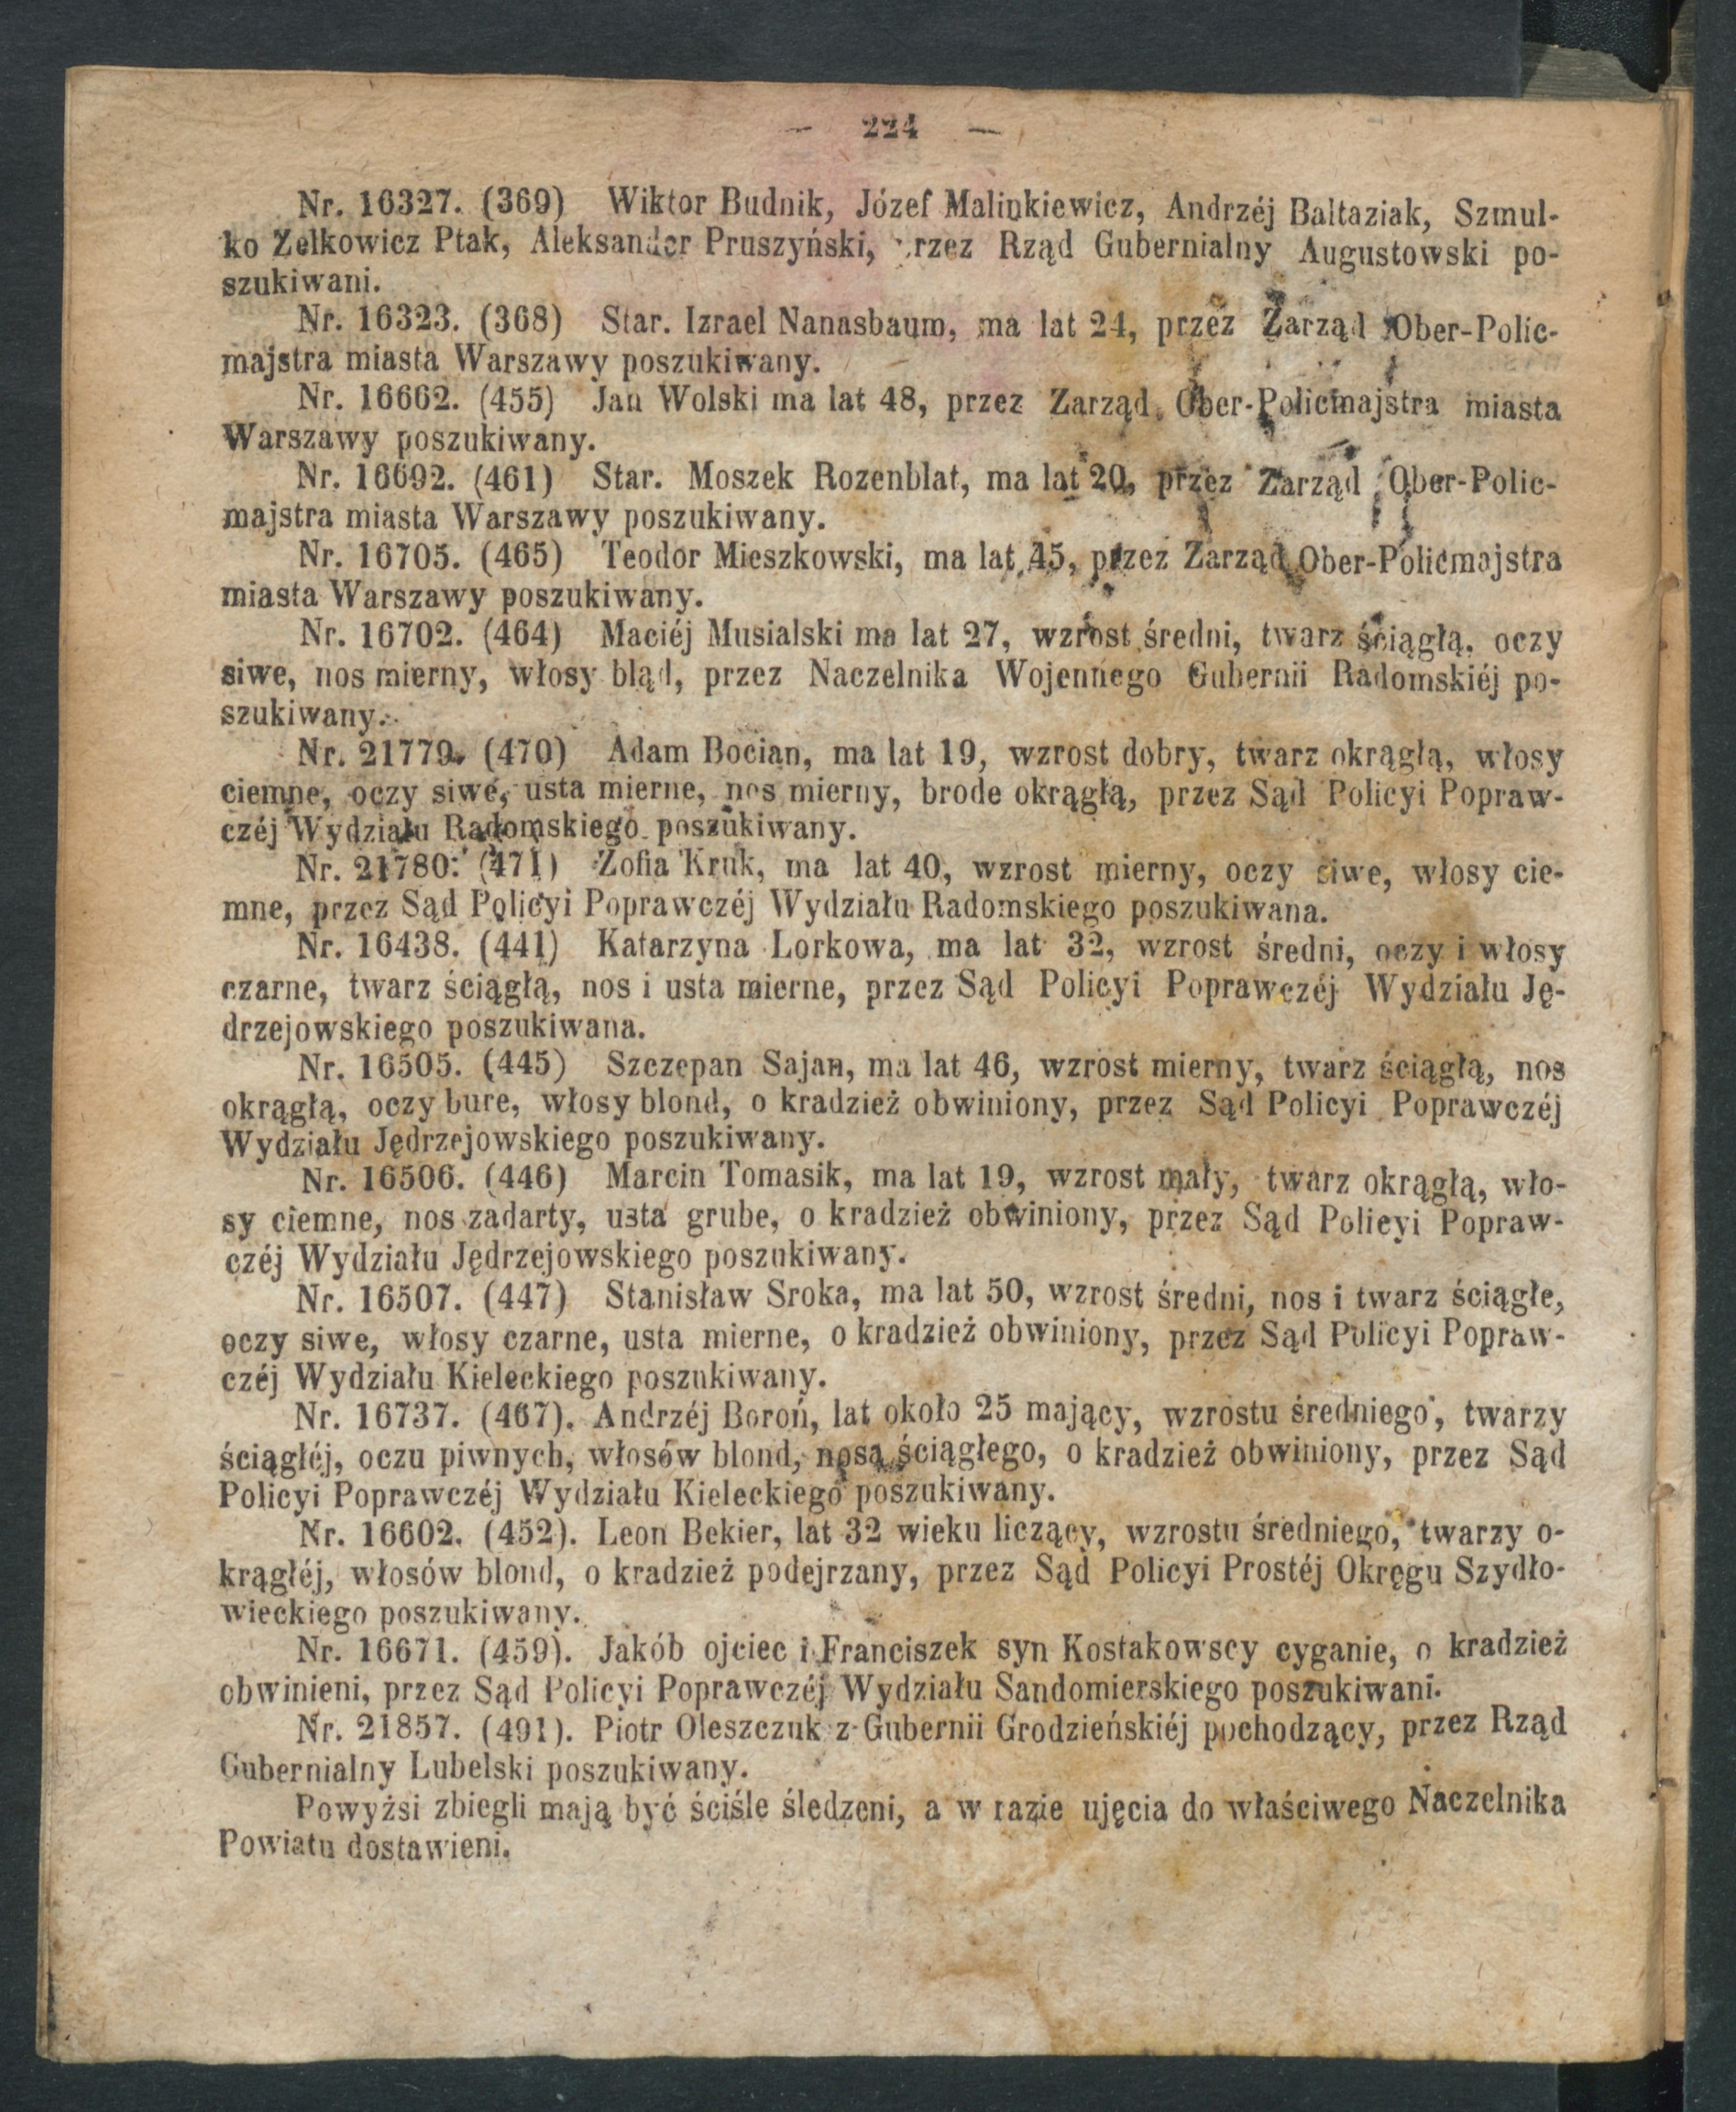 — 224 —
Nr. 16327. (369) Wiktor Budnik, Józef Malinkiewicz, Andrzéj Baltaziak, Szmul-
ko Zelkowicz Ptak, Aleksander Pruszyński, przez Rząd Gubernialny Augustowski po-
szukiwani.
Nr. 16323. (368) Star. Izrael Nanasbaum, ma lat 24, przez Zarząd Ober-Polic-
majstra miasta Warszawy poszukiwany.
Nr. 16662. (455) Jan Wolski ma lat 48, przez Zarząd Ober-Policmajstra miasta
Warszawy poszukiwany.
Nr. 16692. (461) Star. Moszek Rozenblat, ma lat 20, przez Zarząd Ober-Polic-
majstra miasta Warszawy poszukiwany.
Nr. 16705. (465) Teodor Mieszkowski, ma lat 45, przez Zarząd Ober-Policmajstra
miasta Warszawy poszukiwany.
Nr. 16702. (464) Maciéj Musialski ma lat 27, wzrost średni, twarz ściągłą, oczy
siwe, nos mierny, włosy bląd, przez Naczelnika Wojennego Gubernii Radomskiéj po-
szukiwany.
Nr. 21779. (470) Adam Bocian, ma lat 19, wzrost dobry, twarz okrągłą, włosy
ciemne, oczy siwe, usta mierne, nos mierny, brode okrągłą, przez Sąd Policyi Popraw-
czéj Wydziału Radomskiego poszukiwany.
Nr. 21780. (471) Zofia Kruk, ma lat 40, wzrost mierny, oczy siwe, włosy cie-
mne, przez Sąd Policyi Poprawczéj Wydziału Radomskiego poszukiwana.
Nr. 16438. (441) Katarzyna Lorkowa, ma lat 32, wzrost średni, oczy i włosy
czarne, twarz ściągłą, nos i usta mierne, przez Sąd Policyi Poprawczéj Wydziału Ję-
drzejowskiego poszukiwana.
Nr. 16505. (445) Szczepan Sajan, ma lat 46, wzrost mierny, twarz ściągłą, nos
okrągłą, oczy bure, włosy blond, o kradzież obwiniony, przez Sąd Policyi Poprawczéj
Wydziału Jędrzejowskiego poszukiwany.
Nr. 16506. (446) Marcin Tomasik, ma lat 19, wzrost mały, twarz okrągłą, wło-
sy ciemne, nos zadarty, usta grube, o kradzież obwiniony, przez Sąd Policyi Popraw-
czéj Wydziału Jędrzejowskiego poszukiwany.
Nr. 16507. (447) Stanisław Sroka, ma lat 50, wzrost średni, nos i twarz ściągłe,
oczy siwe, włosy czarne, usta mierne, o kradzież obwiniony, przez Sąd Policyi Popraw-
czéj Wydziału Kieleckiego poszukiwany.
Nr. 16737. (467). Andrzéj Boroń, lat około 25 mający, wzrostu średniego, twarzy
ściągłéj, oczu piwnych, włosów blond, nosa ściągłego, o kradzież obwiniony, przez Sąd
Policyi Poprawczéj Wydziału Kieleckiego poszukiwany.
Nr. 16602. (452). Leon Bekier, lat 32 wieku liczący, wzrostu średniego, twarzy o-
krągłéj, włosów blond, o kradzież podejrzany, przez Sąd Policyi Prostéj Okręgu Szydło-
wieckiego poszukiwany.
Nr. 16671. (459). Jakób ojciec i Franciszek syn Kostakowscy cyganie, o kradzież
obwinieni, przez Sąd Policyi Poprawczéj Wydziału Sandomierskiego poszukiwani.
Nr. 21857. (491). Piotr Oleszczuk z Gubernii Grodzieńskiéj pochodzący, przez Rząd
Gubernialny Lubelski poszukiwany.
Powyżsi zbiegli mają być ściśle śledzeni, a w razie ujęcia do właściwego Naczelnika
Powiatu dostawieni.